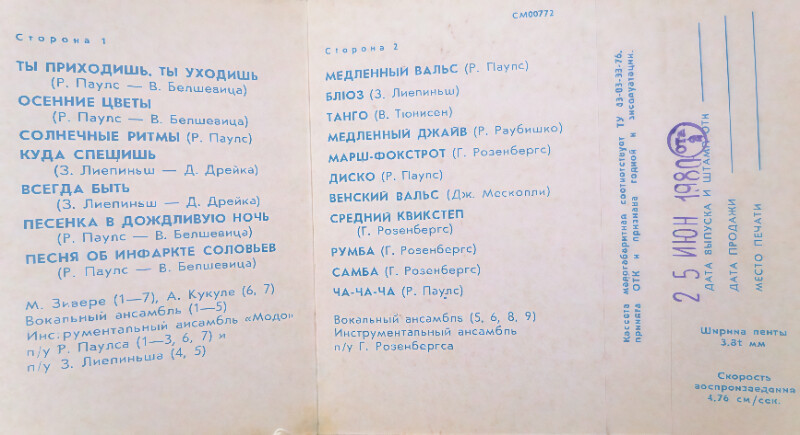 Сторона 1
ТЫ ПРИХОДИШЬ, ТЫ УХОДИШЬ
(Р. Паулс — В. Белшевица)
ОСЕННИЕ ЦВЕТЫ
(Р. Паулс — В. Белшевица)
СОЛНЕЧНЫЕ РИТМЫ (Р. Паулс)
КУДА СПЕШИШЬ
(З. Лиепиньш — Д. Дрейка)
ВСЕГДА БЫТЬ
(З. Лиепиньш — Д. Дрейка)
ПЕСЕНКА В ДОЖДЛИВУЮ НОЧЬ
(Р. Паулс — В. Белшевица)
ПЕСНЯ ОБ ИНФАРКТЕ СОЛОВЬЕВ
(Р. Паулс — В. Белшевица)
М. Зивере (1—7), А. Кукуле (6, 7)
Вокальный ансамбль (1—5)
Инструментальный ансамбль «Модо»
п/у Р. Паулса (1—3, 6, 7) и
п/у З. Лиепиньша (4, 5)
СМ00772
Сторона 2
МЕДЛЕННЫЙ ВАЛЬС (Р. Паулс)
БЛЮЗ (З. Лиепиньш)
ТАНГО (В. Тюнисен)
МЕДЛЕННЫЙ ДЖАЙВ (Р. Раубишко)
МАРШ-ФОКСТРОТ (Г. Розенбергс)
ДИСКО (Р. Паулс)
ВЕНСКИЙ ВАЛЬС (Дж. Мескопли)
СРЕДНИЙ КВИКСТЕП
(Г. Розенбергс)
РУМБА (Г. Розенбергс)
САМБА (Г. Розенбергс)
ЧА-ЧА-ЧА (Р. Паулс)
Вокальный ансамбль (5, 6, 8, 9)
Инструментальный ансамбль
п/у Г. Розенбергса
Кассета малогабаритная соответствует ТУ 43-03-33-76,
принята ОТК и признана годной к эксплуатации.
25 ИЮН 1980
ОТК
ДАТА ВЫПУСКА И ШТАМП ОТК
ДАТА ПРОДАЖИ
МЕСТО ПЕЧАТИ
Ширина ленты
3,81 мм
Скорость
воспроизведения
4,76 см/сек.